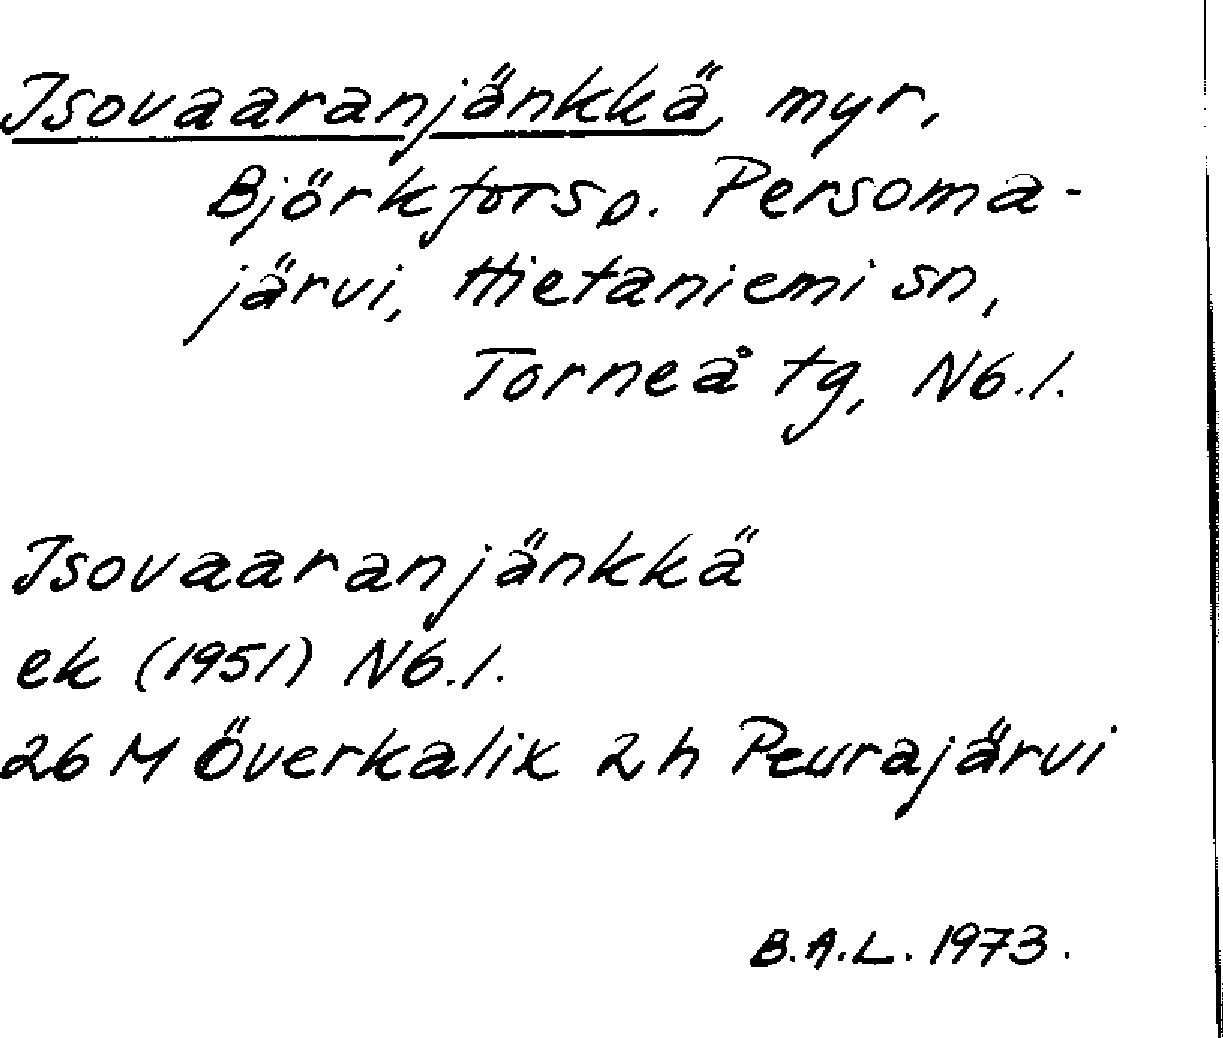 Isovaaranjänkkä, myr,
Björkfors o. Persoma-
järvi, Hietaniemi sn,
Torneå tg, N6.1.
Isovaaranjänkkä
ek (1951) N6.1.
26 M Överkalix 2h Peurajärvi
B.A.L. 1973.